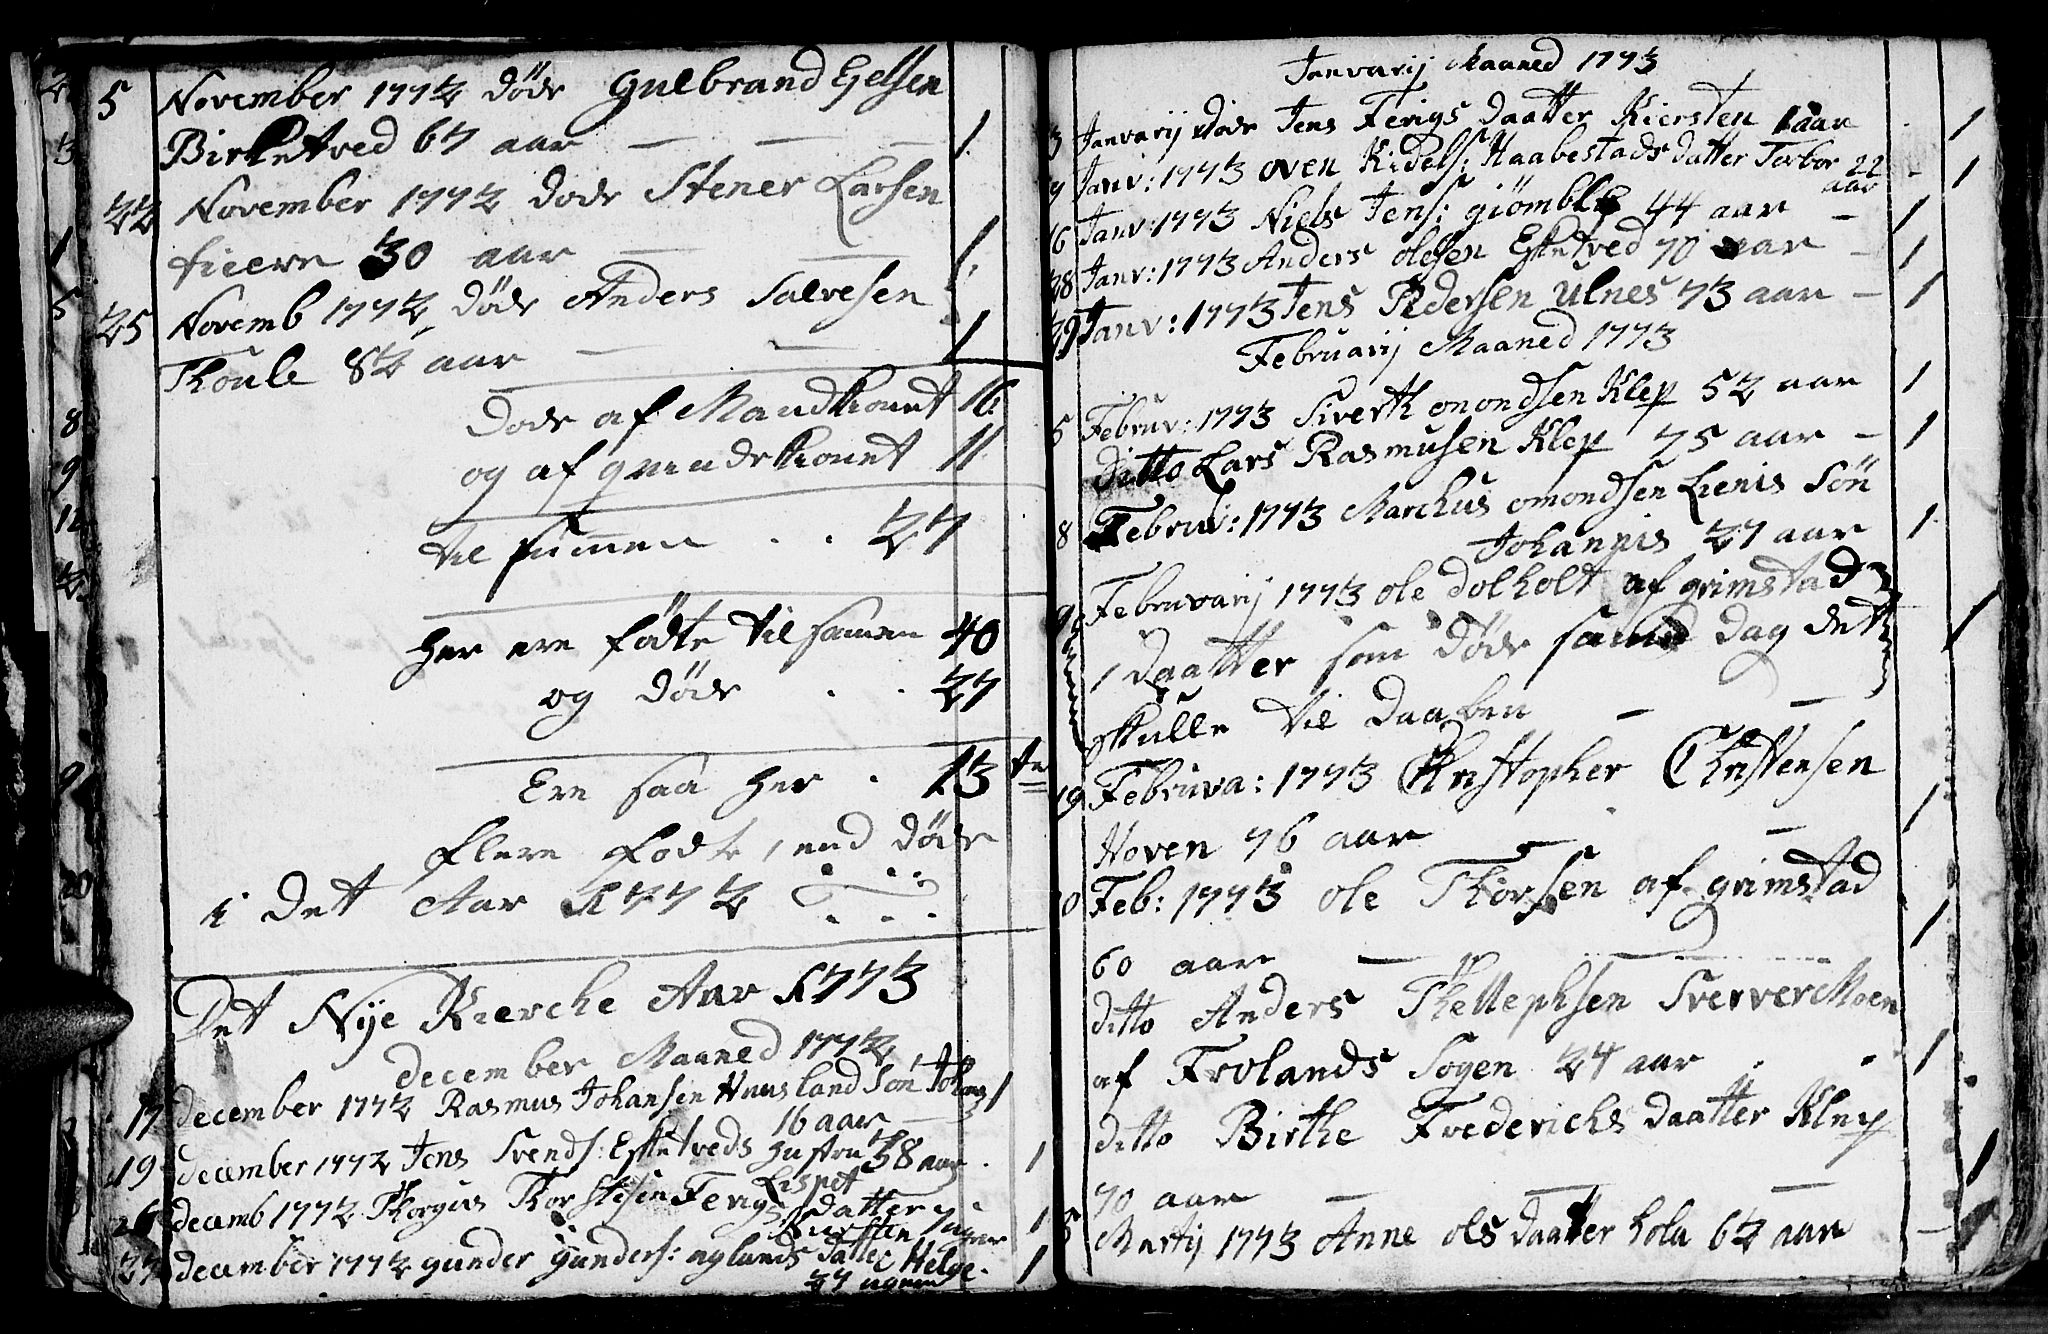 5 November 1772 döde Gulbrand Eselsen
Birketved 67 aar — — — 1.
22 November 1772 döde Stener Larsen
fieere 30 aar — — 1.
25 Novemb 1772 döde Anders Salvesen
Thoule 82 aar — — 1
Döde af Mandkönet 16.
og af qvindekönet 11
til summen . . 27
Her ere födte til samen 40
og döde . . 27
Ere saa her . 13 ten
flere födte, end döde
i det Aar 1772
Det Nÿe Kierche Aar 1773
december Maaned 1772
17 december 1772 Rasmus Johansen Huusland Sön Johans 1
16 aar
19 december 1772 Jens Svends: Esketveds hustru 38 aar . 1
Lispet
26 decemb 1772 Thorgius Thorstesen Fevigs datter
Kiersten 1
27 december 1772 gunder gunders: nylunds datter Helge. 1
27 ugere
Janvarij Maaned 1773
3 Janvarij döde Jens Fevigs daatter Kiersten 1 aar . 1
9 Janv: 1773 oven Kidels: Haabestads datter Torbor 22 - 1
aar
16 Janv: 1773 Niels Jens: giömble 44 aar — 1
28 Janv: 1773 Anders olesen Esketved 70 aar — 1
29 Janv: 1773 Jens Pedersen Ulnes 73 aar — 1
Februarij Maaned 1773
5 Februv: 1773 Siverth omondsen Klep 52 aar 1
ditto Lars Rasmusen Klep 75 aar — 1
8 Februv: 1773 Marchus omondsen Lienis Sön
Johannis 27 aar 1
9 Februvarij 1773 ole dolholt af grimstad
1 daatter som döde samme dag det 1
skulle til Daaben — —
19 Februva: 1773 Christopher Christensen
Hoven 76 aar — 1
20 Feb: 1773 ole Thorsen af grimstad
60 aar — 1
ditto Anders Thellephsen Sverver Moen
af Frolands Sogen 24 aar . . 1
ditto Birthe Frederichs daatter Klep
70 aar — — — 1
5 Martij 1773 Anne ols daatter hola 62 aar — 1